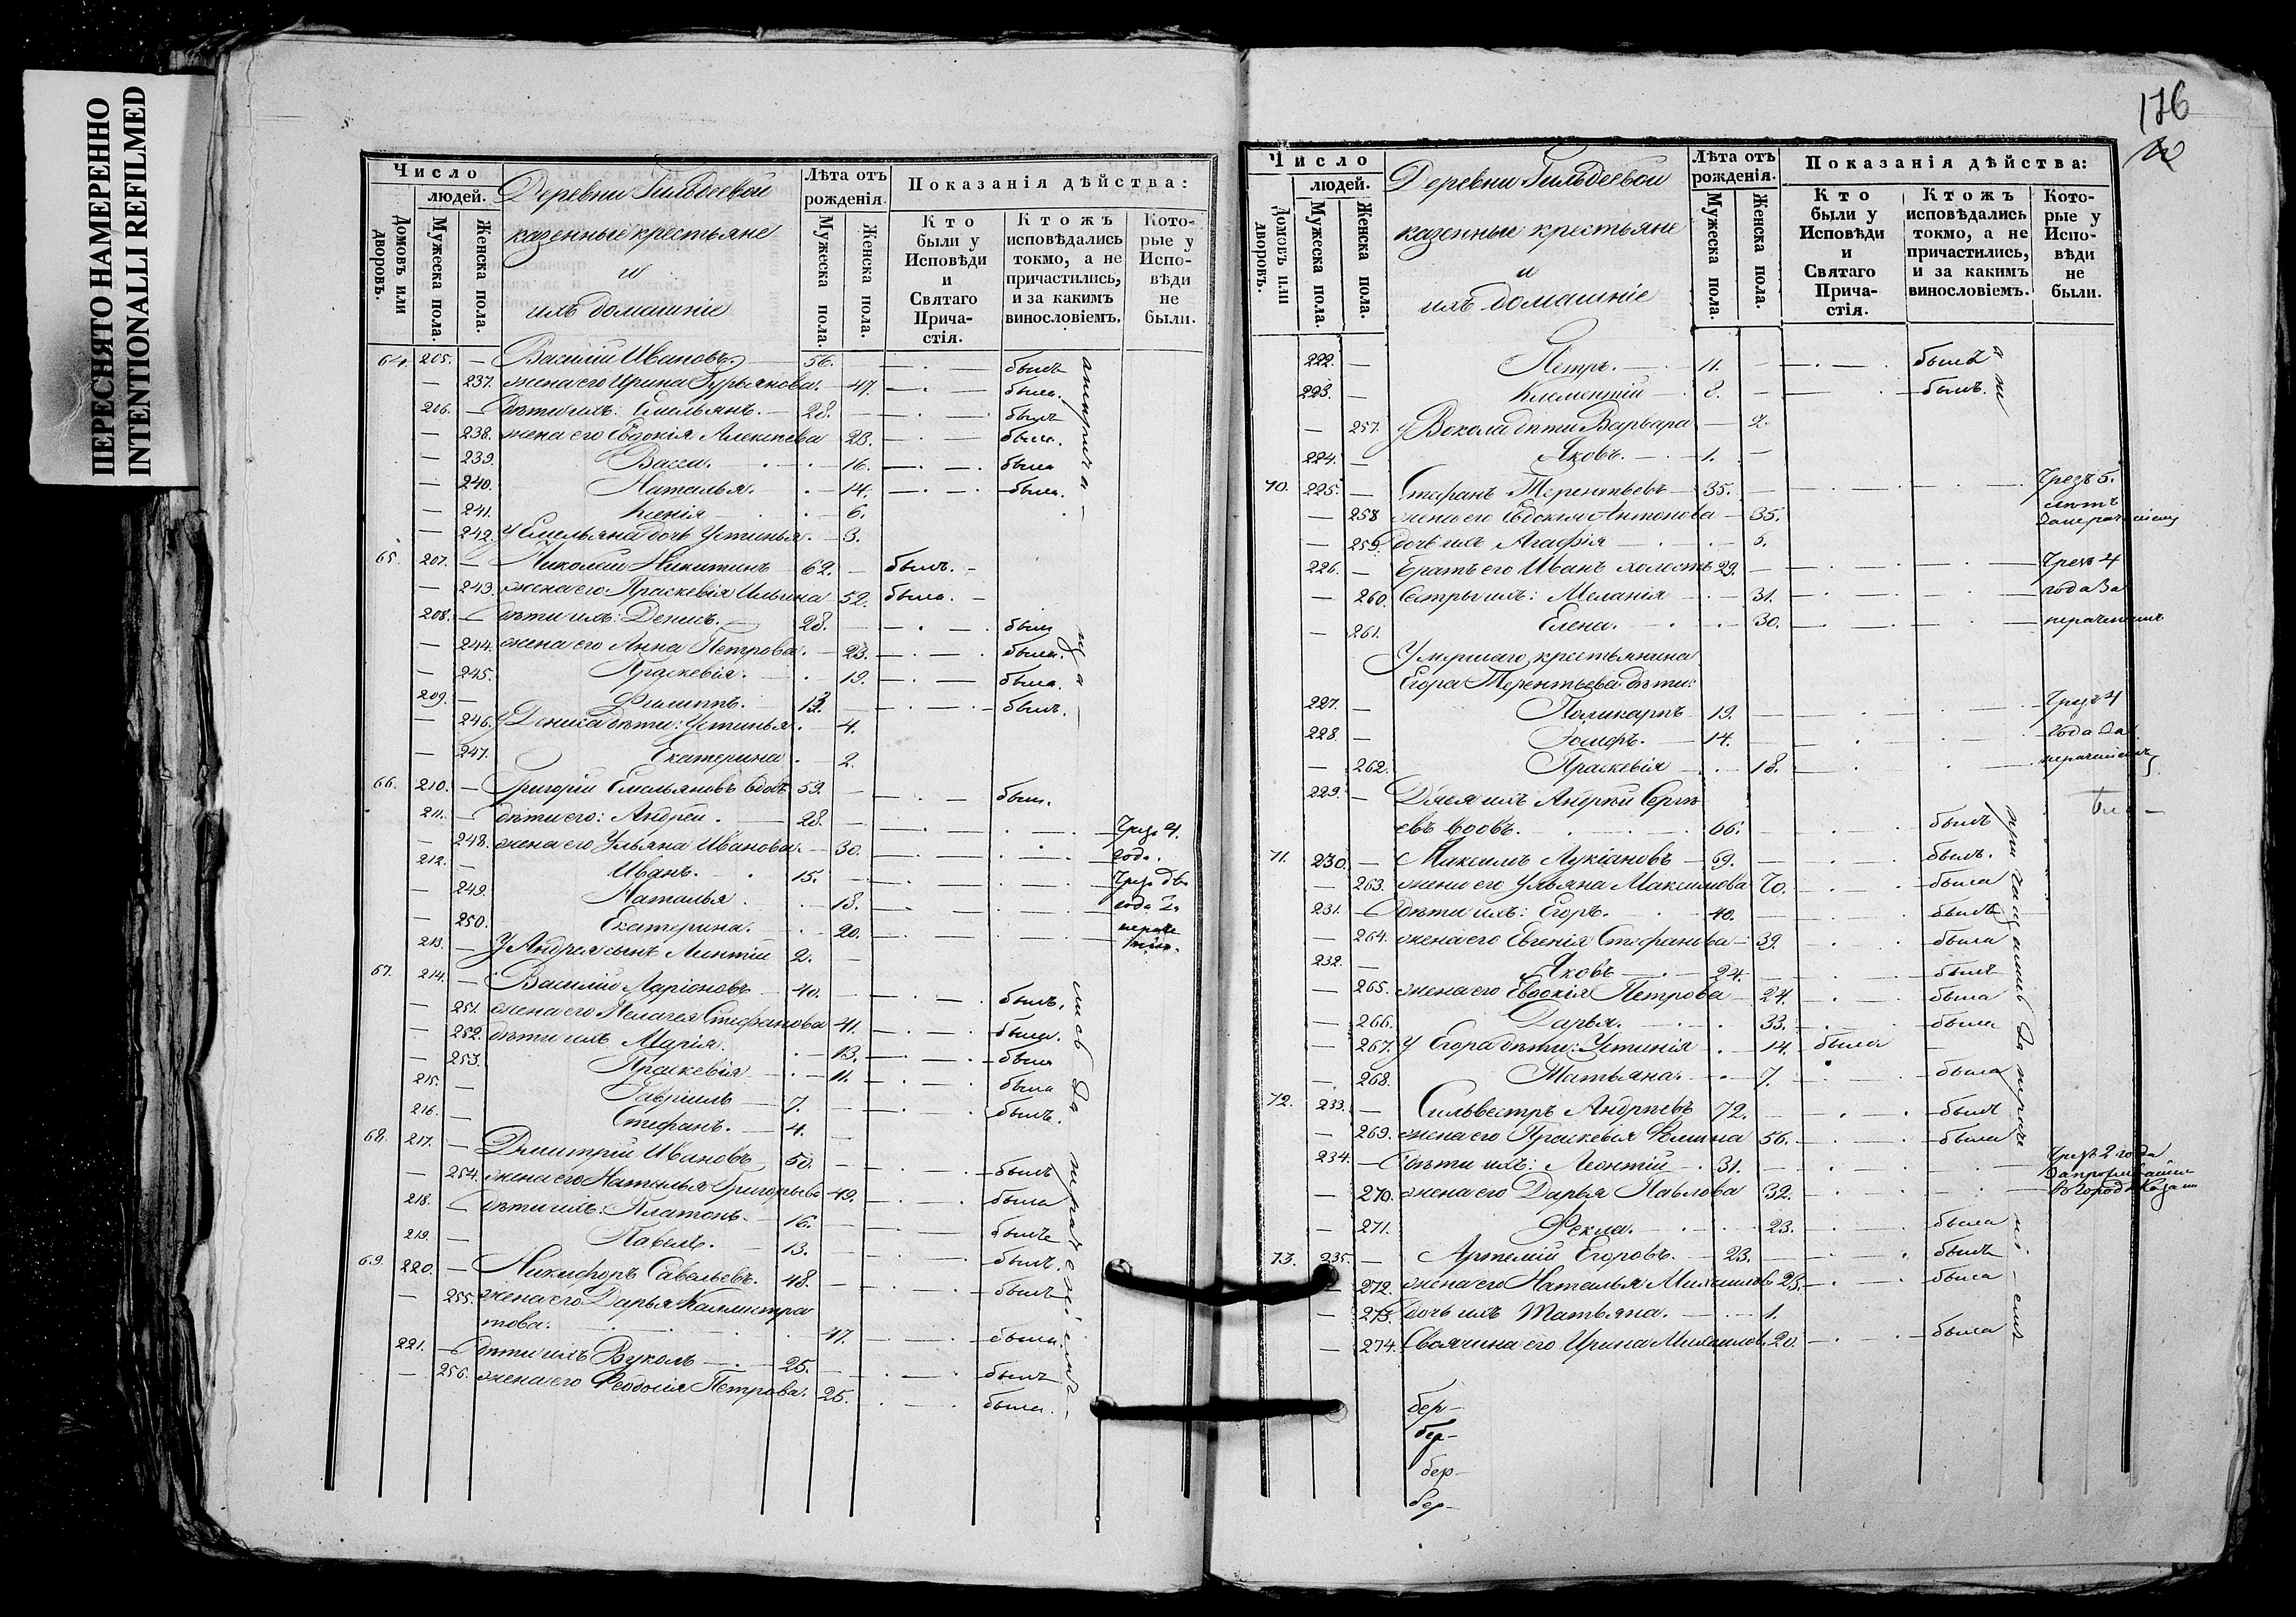 ПЕРЕСНЯТО НАМЕРЕННО
INTENTIONALLI REFILMED
Число
людей.
Домовъ или дворовъ.
Мужеска пола.
Женска пола.
Деревни Гильдеевой
казенные крестьяне
и
ихъ домашніе
Лѣта отъ рожденія.
Мужеска пола.
Женска пола.
Показанія дѣйства:
Кто были у Исповѣди и Святаго Прича-стія.
Ктожъ исповѣдались токмо, а не причастились, и за какимъ винословіемъ.
Кото-рые у Испо-вѣди не были.
64. 205. — Василій Ивановъ. 56. — былъ
— 237. жена его Ирина Гурьянова. — 47. — была.
206. — дѣти ихъ: Емельянъ. — 28. — былъ
— 238. жена его Евдокія Алексѣева 23. — была.
— 239. Васса. — 16. — была
— 240. Наталья. — 14. — была.
— 241. Ксенія — 6.
— 242. У Емельяна дочь Устинья. — 3.
65. 207. — Николай Никитинъ 62. — былъ. —
— 243. жена его Праскевія Ильина 52. была. —
208. — дѣти ихъ: Денисъ. — 28. — былъ
— 244. жена его Анна Петрова. — 23. — была.
— 245. Праскевія. — 19. — была.
209. — Филиппъ. — 13. — былъ.
— 246. У Дениса дѣти: Устинья. — 4.
— 247. Екатерина. — 2.
66. 210. — Григорій Емельяновъ вдовъ 59. — былъ.
211. — дѣти его: Андрей. — 28. — Чрезъ 4.
— 248. жена его Ульяна Иванова. — 30. — года.
212. — Иванъ. — 15. — Чрезъ два
— 249. Наталья. — 18. — года За
— 250. Екатерина. — 20. — нераче
213. — У Андрея сынъ Леонтій 2. — ніемъ.
67. 214. — Василій Ларіоновъ 40. — былъ.
— 251. жена его Пелагея Стефанова 41. — была.
— 252. дѣти ихъ Марія. — 13. — была
— 253. Праскевія — 11. — была
215. — Гавріилъ 7. — былъ.
216. — Стефанъ. — 4. —
68. 217. — Дмитрій Ивановъ 50. — былъ
— 254. жена его Наталья Григорьева 49. — была
218. — дѣти ихъ: Платонъ. — 16. — былъ
219. — Павелъ. — 13. — былъ.
69. 220. — Никифоръ Савельевъ. 48. — былъ
— 255. жена его Дарья Каллистра
това. — 47. — была.
221. — дѣти ихъ Вуколъ — 25. — былъ
— 256. жена его Феодосія Петрова. 25. — была.
176
Число
людей.
Домовъ или дворовъ.
Мужеска пола.
Женска пола.
Деревни Гильдеевой
казенные крестьяне
и
ихъ домашніе
Лѣта отъ рожденія.
Мужеска пола.
Женска пола.
Показанія дѣйства:
Кто были у Исповѣди и Святаго Прича-стія.
Ктожъ исповѣдались токмо, а не причастились, и за какимъ винословіемъ.
Кото-рые у Испо-вѣди не были.
222. — Петръ. — 11. — былъ
223. — Климентій — 8. — былъ.
— 257. У Вокола дѣти Варвара — 2.
224. — Яковъ. — 1. —
70. 225. — Стефанъ Терентьевъ — 35. — Чрезъ 5.
лѣтъ
— 258 жена его Евдокія Антонова — 35. За нераченіемъ
— 259. дочь ихъ Агафія — 5.
226. — Братъ его Иванъ холостъ 29. — Чрезъ 4
— 260. Сестры ихъ: Меланія — 31. — года За
— 261. Елена. — 30. — нераченіемъ
Умершаго крестьянина
Егора Терентьева дѣти:
227. — Поликарпъ 19. — Чрезъ 4
228. — Іосифъ. — 14. — года За
— 262. Праскевія — 18. — нераченіемъ
229. — Дядя ихъ Андрей Сергѣ
евъ вдовъ. — 66. — былъ
71. 230. — Максимъ Лукіановъ — 69. — былъ.
— 263. жена его Ульяна Максимова 70. — была
231. — дѣти ихъ: Егоръ. — 40. — былъ
— 264. жена его Евгенія Стефанова — 39. — была
232. — Яковъ — 24. — былъ
— 265. жена его Евдокія Петрова — 24. — была
— 266. Дарья. — 33. — была
— 267. У Егора дѣти: Устинія — 14. — была —
— 268. Татьяна. — 7. — была
72. 233. — Сильвестръ Андреевъ 72. — былъ
— 269. жена его Праскевія Фомина 56. — была
234. — дѣти ихъ: Леонтій — 31. — Чрезъ 2 года
За проживаніе
— 270. жена его Дарья Павлова 32. — въ Городѣ Казани
— 271. Фекла. — 23. — была
73. 235. — Артемій Егоровъ. — 23. — былъ
— 272. жена его Наталья Михаилов. 23. — была
— 273. дочь ихъ Татьяна. — 1.
— 274. Своячина его Ирина Михаилов. 20. — была
бер—
бер—
бер—
бер—